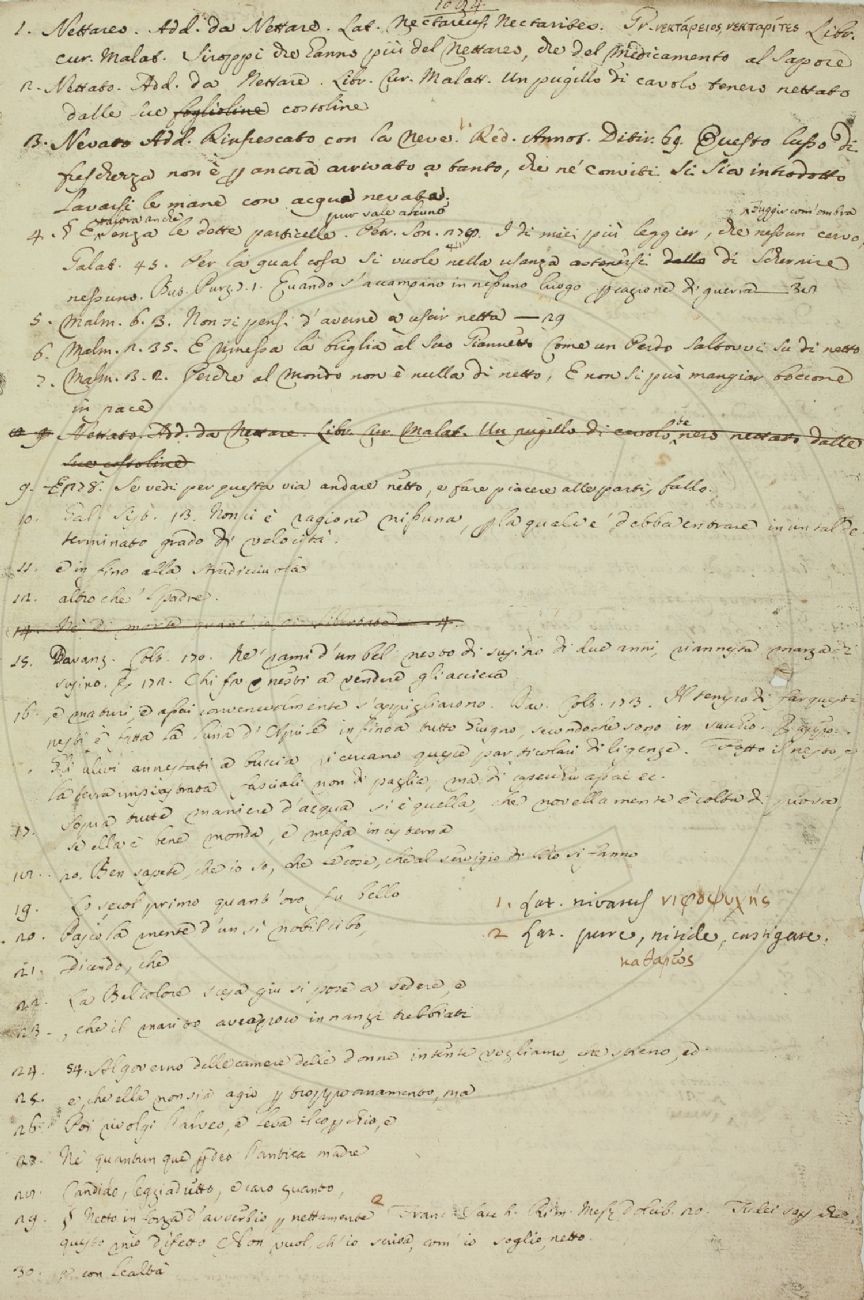 1. Nettareo. Add. da Nettare. Lat. Nectareus Nectarites. Gr. νεκτάρειος, νεκταρίτες Libr.
cur. Malat. Siroppi che hanno più del Nettareo, che del Medicamento al sapore
2. Nettato. Add. da Nettare. Libr. Cur. Malatt. Un pugillo di cavolo tenero nettato
dalle sue foglioline costoline
3. Nevato Add. Rinfrescato con la Neve. Red. Annot. Ditir. 69. Questo lusso di
freschezza non è ancora arrivato a tanto, che ne' conviti si sia introdotto
Lavarsi le mane con acqua nevata.
talora anche pur vale alcuno fuggir com' ombra
4. § E Senza le dette particelle. Petr. Son. I dì miei più leggier, che nessun cervo,
Galat. 43. Per la qual cosa si vuole nella usanza astenersi dallo di schernire
nessuno. Purg. 1. Quando s'accampano in nessuno luogo cagione di guerra
5. Malm. 6. 3. Non si pensi d'averne a uscir netta — 29
6. Malm. 2. 35. E rimessa la briglia al suo Giannetto Come un Pardo saltovvi su di netto
7. Malm. 3. 2. Perche al Mondo non è nulla di netto, E non si può mangiar boccone
in pace
Nettato. Ad. da Nettare. Libr. Cur Malat. Un pugillo di cavolo nero nettato dalle
sue costoline
9. Se vedi per questa via andare netto, e fare piacere alle parti, fallo.
10. Gal. Sist. 13. Non ci è ragione nissuna, la quale e' debba entrare in un tal de
terminato grado di velocità.
11. e in fino alla
12. altro che 'l padre.
14. Ne di morte
15. Davanz. Colt. 170. Ne' rami d'un bel nesto di susino di due anni, riannesta marza di
susino. E 172. Chi fa nesti a vendere gli accieca
16. e maturi, e assai convenevolmente s'appigliarono. Dav. Colt. 173. Il tempo di far questi
nesti è tutta la luna d'Aprile infino a tutto Giugno, secondoche sono in succhio.
Gli ulivi annestati a buccia ricercano queste particolari diligenze. Fatto il nesto, e
la fessa impiastrata fasciali non di paglia, ma di
17. Sopra tutte maniere d'acqua si è quella, che novellamente è colta di piova,
se ella è bene monda, e messa in cisterna
20. Ben sapete, che io so, che le cose, che al servigio di Dio si fanno
19. Lo secol primo quant' oro fu bello
20. Pasco la mente d'un sì nobil cibo,
21. Dicendo, che
22. La Belcolore scesa giù si pose a sedere, e
23. , che il marito aveva poco innanzi trebbiati
24. 54. Al governo delle camere delle donne intente vogliamo, che steano, ed
25. e, che ella non sia agio troppo ornamento, ma
26. Poi rivolgi l'alveo, e leva il coperchio, e
Ne quantunque perdeo l'antica madre
Candido, leggiadretto, e caro guanto,
29. § Netto in forza d'avverbio nettamente 2 Franc. Sacch. Rim.
questo mio difetto E non vuol, ch'io scriva, com' io soglio, netto.
30. con lealtà
1. Lat. nivatus νιφοψυχής
2 Lat. pure, nitide, castigate.
καθαρῶς